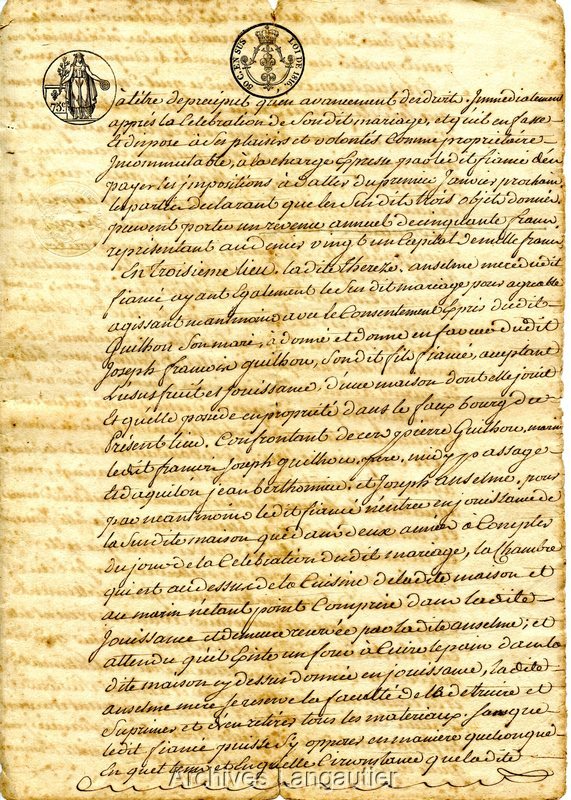 75c
50 C. EN SUS
LOI DE 1816.
à titre de preciput qu'en avancement de droit. Immediatement
apprés la Celebration de Sondit mariage, et qu'il en fasse
et dispose à Ses plaisirs et volontés Comme propriétaire
Incommutable, à la charge Expresse par le dit fiancé d'en
payer les impositions à datter du premier Janvier prochain
les parties declarant que les Susdits trois objets donnés
peuvent porter un revenu annuel de cinquante francs
représentant au denier vingt un Capital de mille francs
En troisieme lieu. la dite thereze. anselme mere du dit
fiancé ayant Egalement le Susdit mariage pour agreable
agissant neantmoins avec le Consentement Exprés du dit
Guilhou Son mary, à donné et donne en faveur du dit
Joseph francois guilhou, Son dit fils fiancé, acceptant
L'usufruit et jouissance, d'une maison dont elle jouit
Et qu'elle possede en propriété dans le faux bourg du
Présent lieu. Confrontant de cers pierre Guilhou, marin
le dit francois Joseph guilhou. pere. midy passage
et d'aquilon jean berthomieu, et Joseph anselme, pour
par neantmoins le dit fiancé n'entrer en jouissance de
la Susdite maison que dans deux années à Compter
du jour de la Celebration du dit mariage, la Chambre
qui est au dessus de la Cuisine de la dite maison et
au marin n'étant point Comprise dans la dite
Jouissance et demeure reservée par la dite anselme; et
attendu qu'il Existe un four à Cuire le pain dans la
dite maison cy dessus donnée en jouissance, la dite
anselme mere Se reserve la faculté de le détruire et
Suprimer et d'en retirer tous les materiaux, Sans que
le dit fiancé puisse S'y opposer en maniere quelconque
En quel tems et En quelle Circonstance que la dite
Archives Langautier